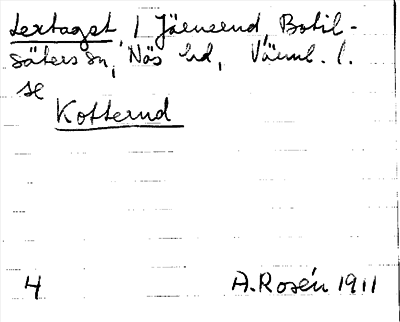 Lertaget, / Jäensend, Botil-
säters sn, Näs hd, Värml. l.
se
Kotterud
4 A.Rosén 1911